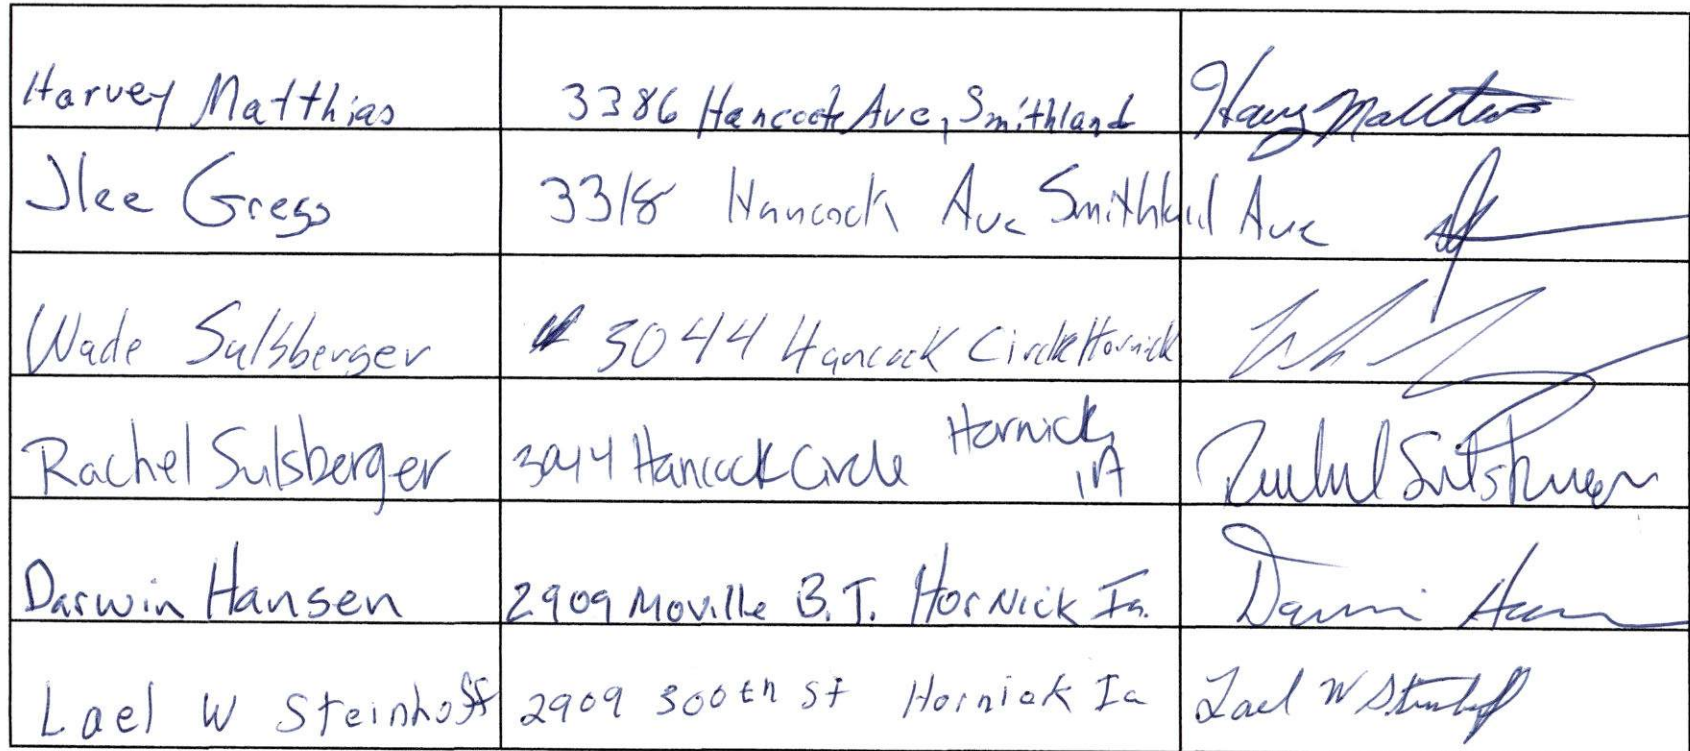 Harvey Matthias 3386 Hancock Ave, Smithland Harvey Matthias
Jlee Gregg 3318 Hancock Ave Smithland Ave
Wade Sulsberger 3044 Hancock Circle Hornick
Rachel Sulsberger 3044 Hancock Circle Hornick, IA Rachel Sulsberger
Darwin Hansen 2909 Moville B.T. Hornick Ia. Darwin Hansen
Lael W Steinhoff 2909 300th St Hornick Ia Lael W Steinhoff